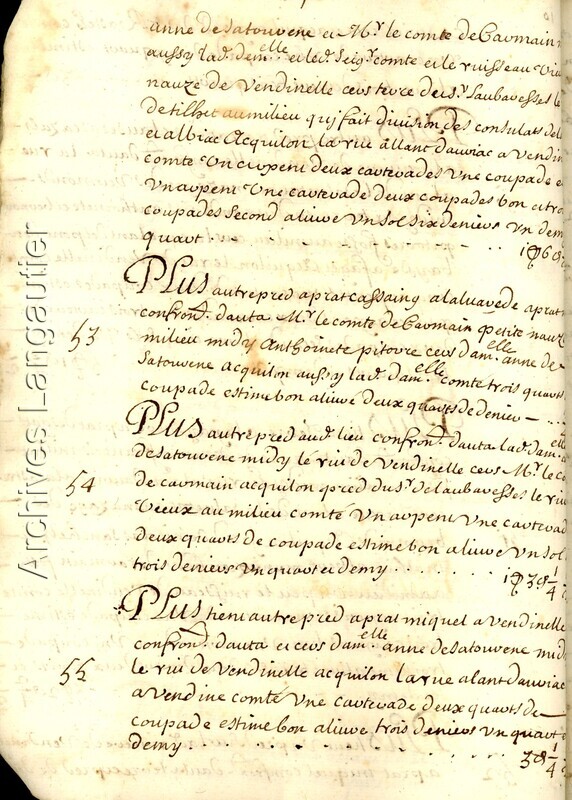 anne de Satouvene et Mr. le comte de Carmain
aussy lad. dam.elle et led. Seigr. comte et le ruisseau
nauze de Vendinelle cers terre du Sr. Laubavesses le
de tilhet au milieu quj fait division des consulats de
et albiac Acquilon la rue allant dauriac a Vendin
comte Un arpent deux cartevades Une coupade e
Un arpent Une cartevade deux coupades bon et tro
coupades Second alivre Un Sol Six deniers Un demy
quart
PLus autre pred a prat cassaing a la luavede a prat
confront. dauta Mr. le comte de Carmain petite nauze
53
milieu midy Anthoinete pitorre cers dam.elle anne de
Satouvene acquilon aussy lad. dam.elle comte trois quarts
coupade estime bon alivre deux quarts de denier
PLus autre pred aud. lieu confront. dauta lad. dam.elle
de Satouvene midy le riu de Vendinelle cers Mr. le co
54
de carmain acquilon pred du Sr. de laubavesses le riu
Vieux au milieu comte Un arpent Une cartevad
deux quarts de coupade estime bon alivre Un Sol
trois deniers Un quart et demy
PLus tient autre pred a prat miquel a Vendinelle
confront. dauta et cers dam.elle anne de Satouvene mid
55
le riu de Vendinelle acquilon la rue alant dauriac
a Vendine comte Une cartevade deux quarts de
coupade estime bon alivre trois deniers Un quart e
demy
Archives Langautier